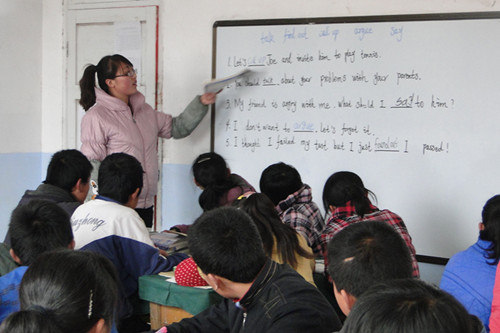 talk find out call up argue say
1. Let's call up Joe and invite him to play tennis.
2. You should talk about your problems with your parents.
3. My friend is angry with me. What should I say to him?
4. I don't want to argue, let's forget it.
5. I thought I failed my test but I just found out I passed!
zheng